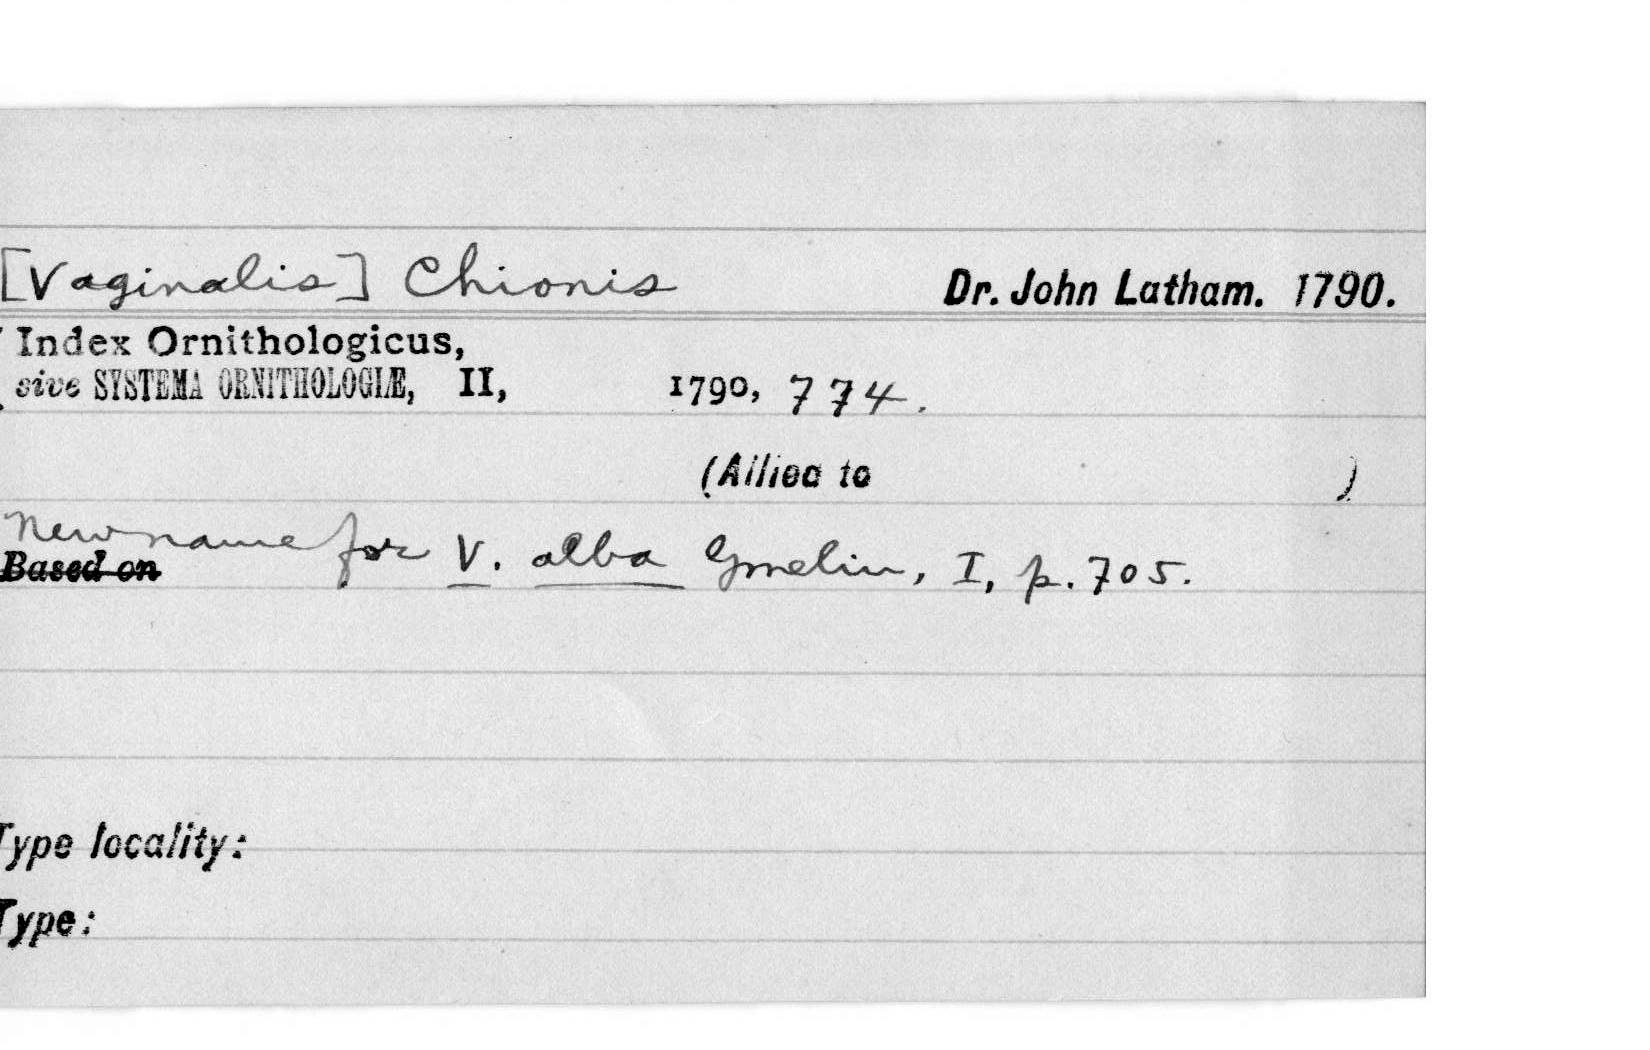 [Vaginalis] Chionis Dr. John Latham. 1790.
Index Ornithologicus,
sive SYSTEMA ORNITHOLOGIÆ, II, 1790, 774.
(Allied to )
New name for V. alba Gmelin, I, p. 705.
Based on
Type locality:
Type: